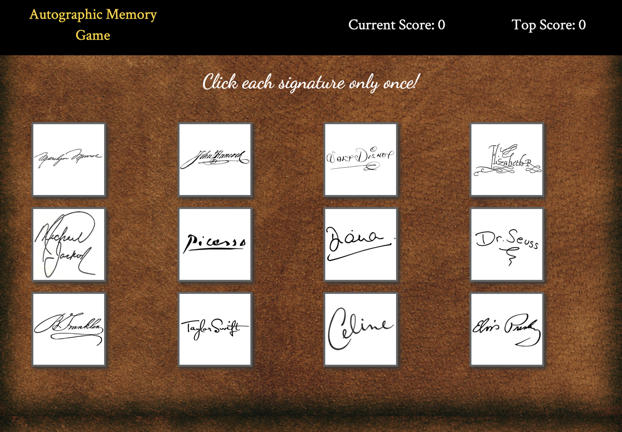 Autographic Memory
Game
Current Score: 0
Top Score: 0
Click each signature only once!
Marilyn Monroe
John Hancock
Walt Disney
Elizabeth R
Michael
Jackson
Picasso
Diana
Dr. Seuss
B Franklin
Taylor Swift
Celine
Elvis Presley